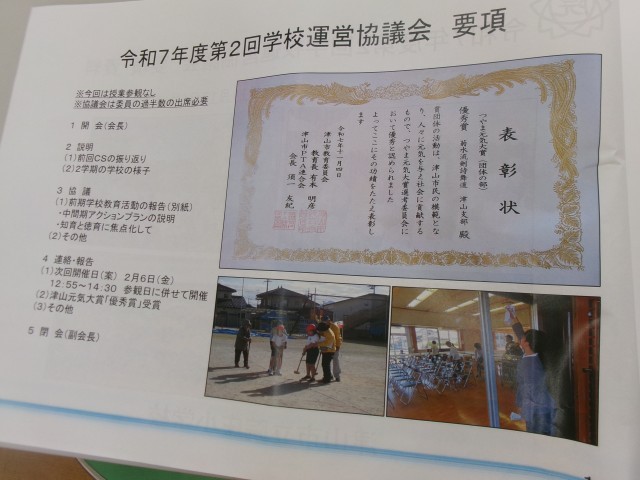 令和7年度第2回学校運営協議会 要項
※今回は授業参観なし
※協議会は委員の過半数の出席必要
1 開 会(会長)
2 説明
(1)前回CSの振り返り
(2)2学期の学校の様子
3 協 議
(1)前期学校教育活動の報告(別紙)
・中間期アクションプランの説明
・知育と徳育に焦点化して
(2)その他
4 連絡・報告
(1)次回開催日(案) 2月6日(金)
12:55~14:30 参観日に併せて開催
(2)津山元気大賞「優秀賞」受賞
(3)その他
5 閉 会(副会長)
表彰状
つやま元気大賞(団体の部)
優秀賞 若水流剣詩舞道 津山支部 殿
貴団体の活動は、津山市民の模範とな
り、人々に元気を与え社会に貢献する
もので、つやま元気大賞選考委員会に
おいて優秀と認められました
よってここにその功績をたたえ表彰し
ます
令和七年十一月四日
津山市教育委員会
教育長 有本 明彦
津山市PTA連合会
会長 須一 友紀